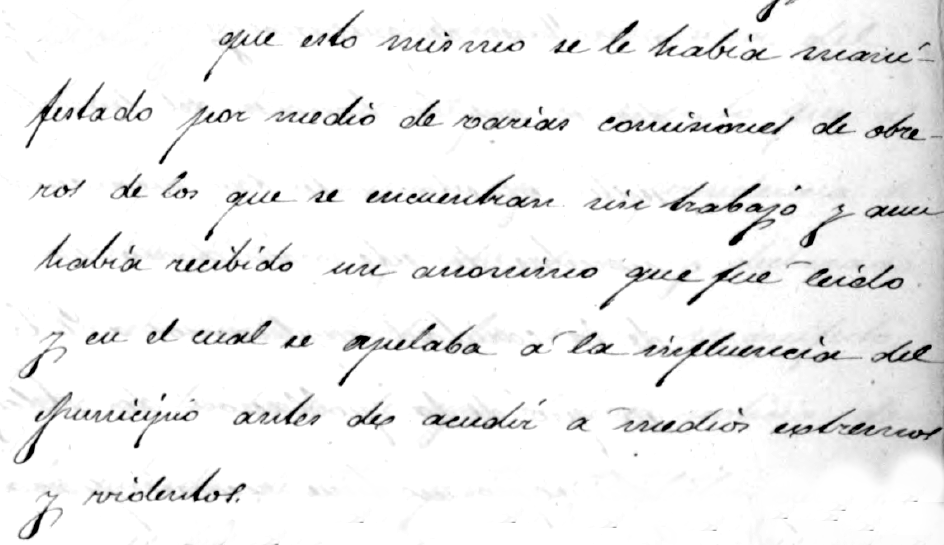 que esto mismo se le había mani-
festado por medio de varias comisiones de obre-
ros de los que se encuentran sin trabajo y aun
había recibido un anonimo que fué leido
y en el cual se apelaba á la influencia del
Municipio antes de acudir a medios extremos
y violentos.